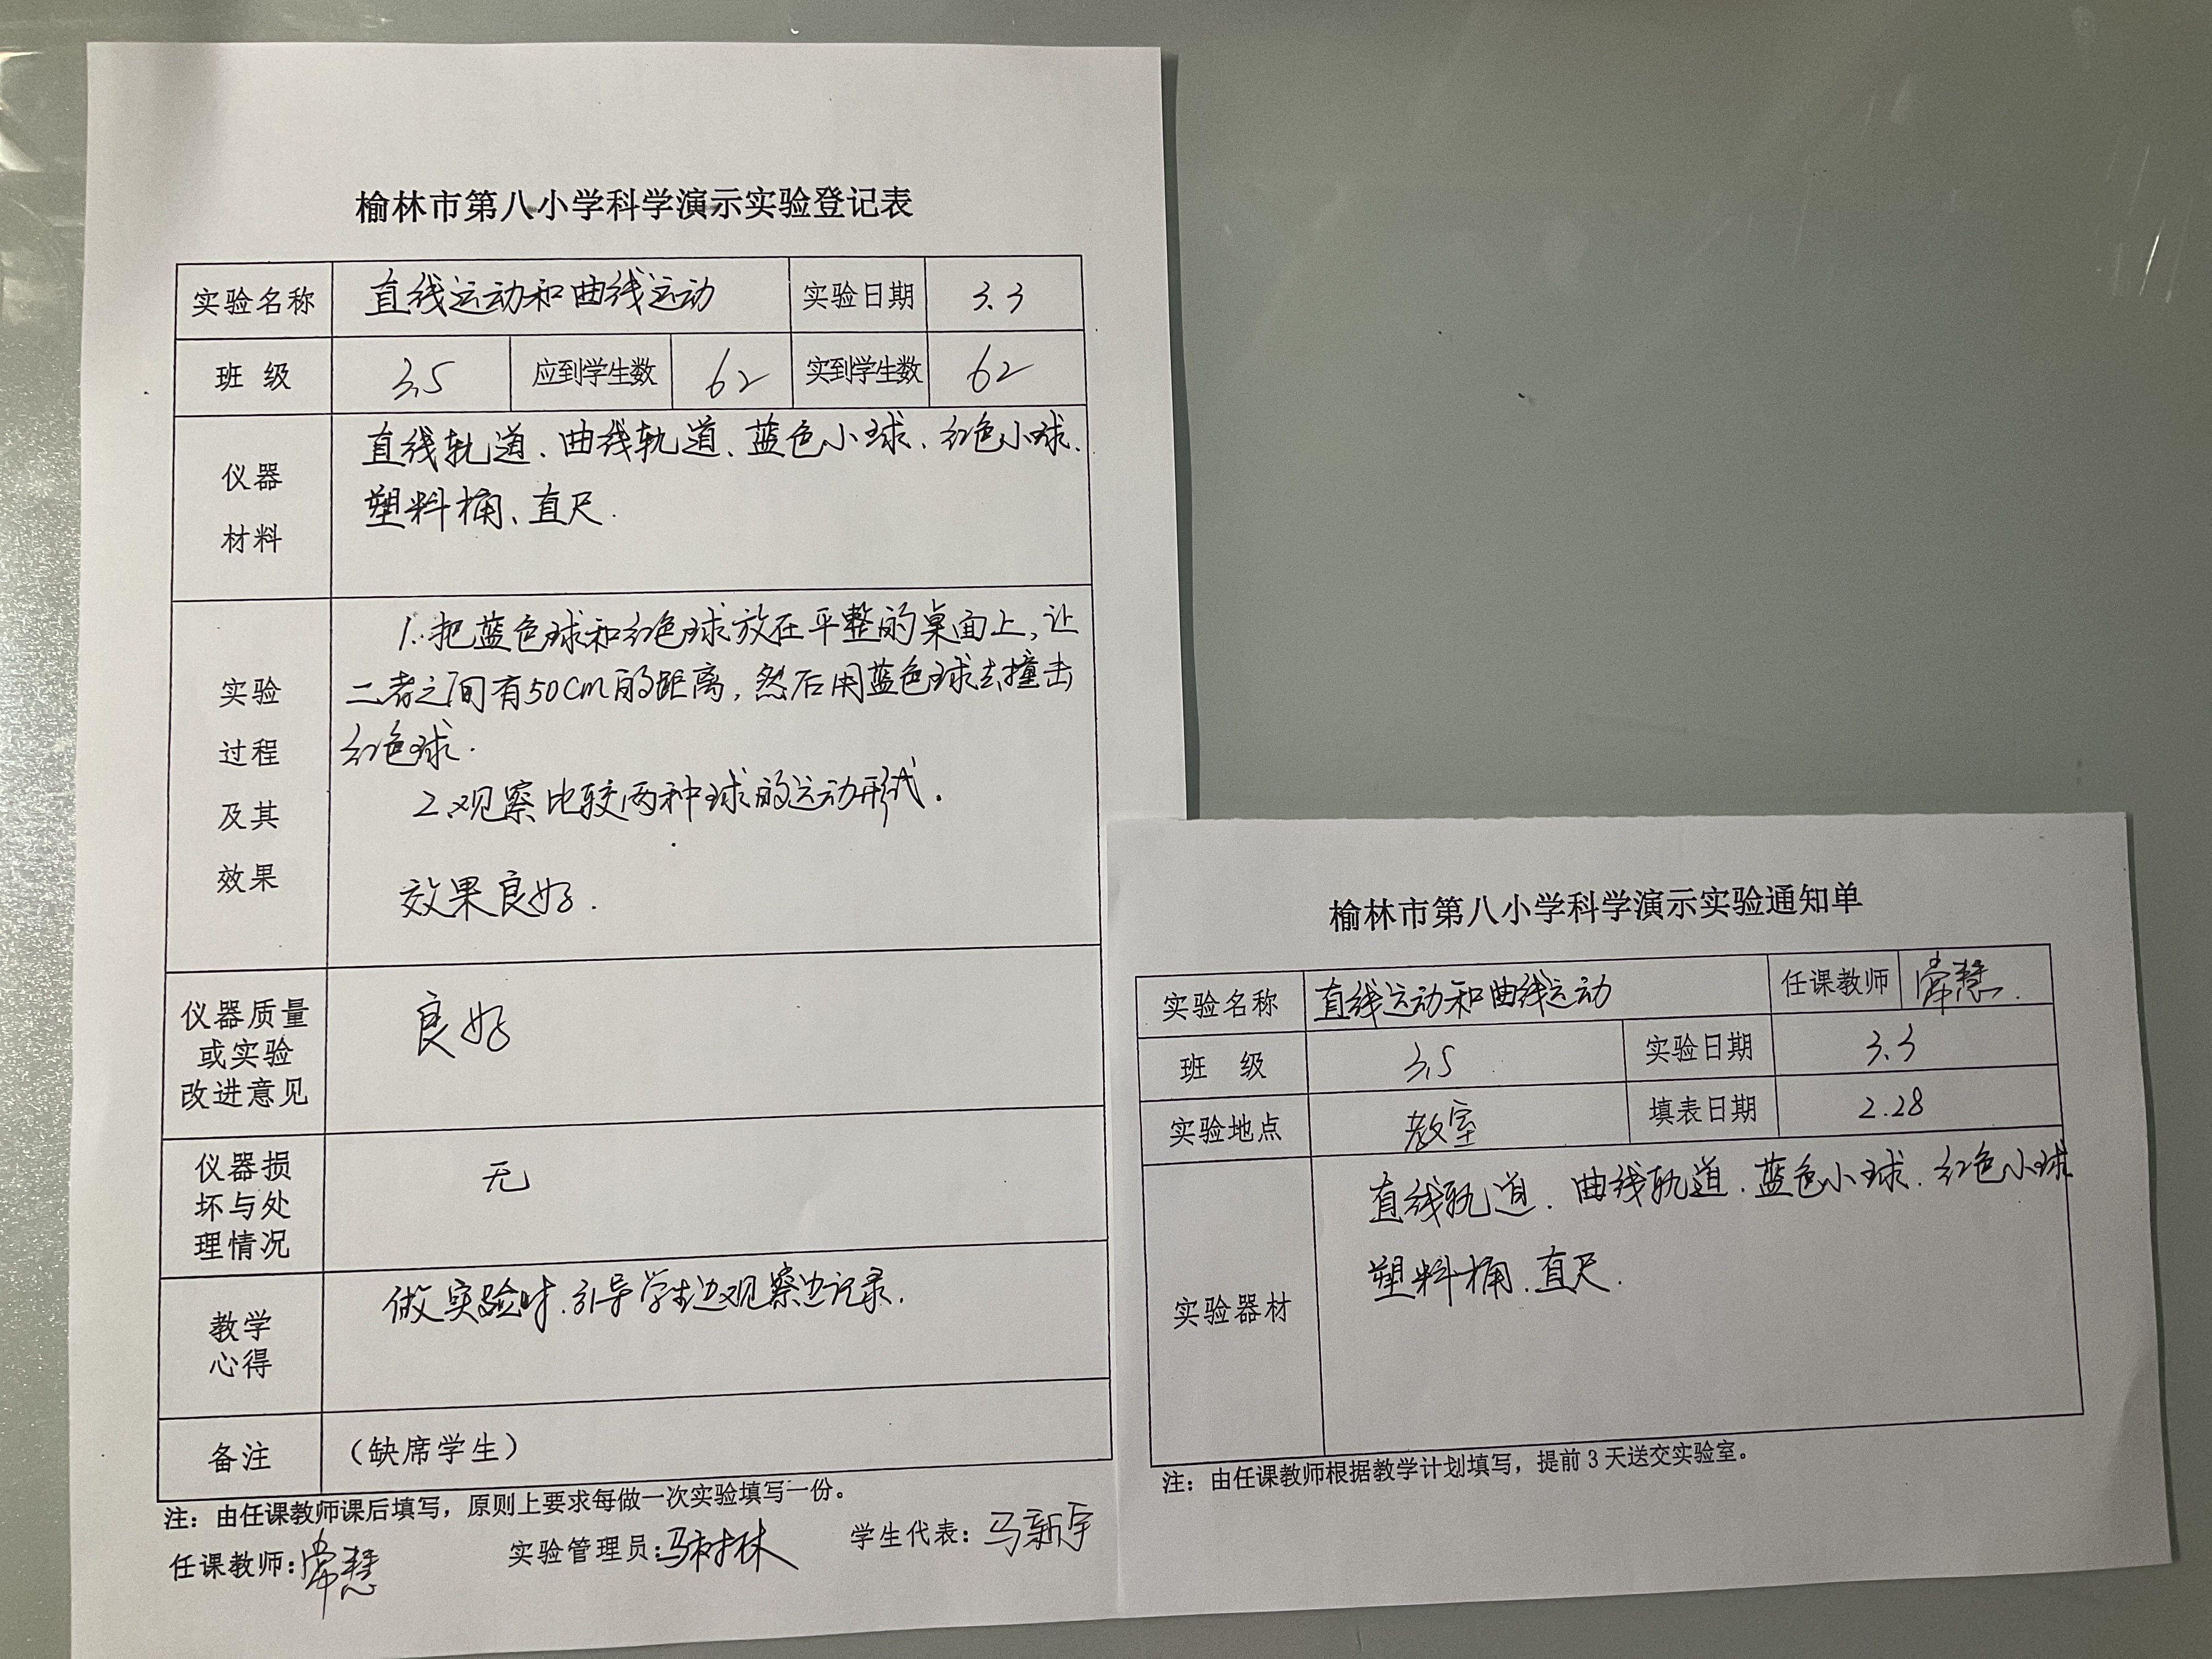 榆林市第八小学科学演示实验登记表
实验名称 直线运动和曲线运动 实验日期 3.3
班 级 3.5 应到学生数 62 实到学生数 62
仪器
材料
直线轨道、曲线轨道、蓝色小球、红色小球、
塑料桶、直尺.
实验
过程
及其
效果
1.把蓝色球和红色球放在平整的桌面上,让
二者之间有50cm的距离,然后用蓝色球去撞击
红色球.
2.观察比较两种球的运动形式.
效果良好.
仪器质量
或实验
改进意见
良好
仪器损
坏与处
理情况
无
教学
心得
做实验时.引导学生边观察边记录.
备注 （缺席学生）
注：由任课教师课后填写，原则上要求每做一次实验填写一份。
任课教师:常慧 实验管理员:马树林 学生代表:马新宇
榆林市第八小学科学演示实验通知单
实验名称 直线运动和曲线运动 任课教师 常慧.
班 级 3.5 实验日期 3.3
实验地点 教室 填表日期 2.28
实验器材
直线轨道.曲线轨道.蓝色小球.红色小球
塑料桶.直尺.
注：由任课教师根据教学计划填写，提前3天送交实验室。